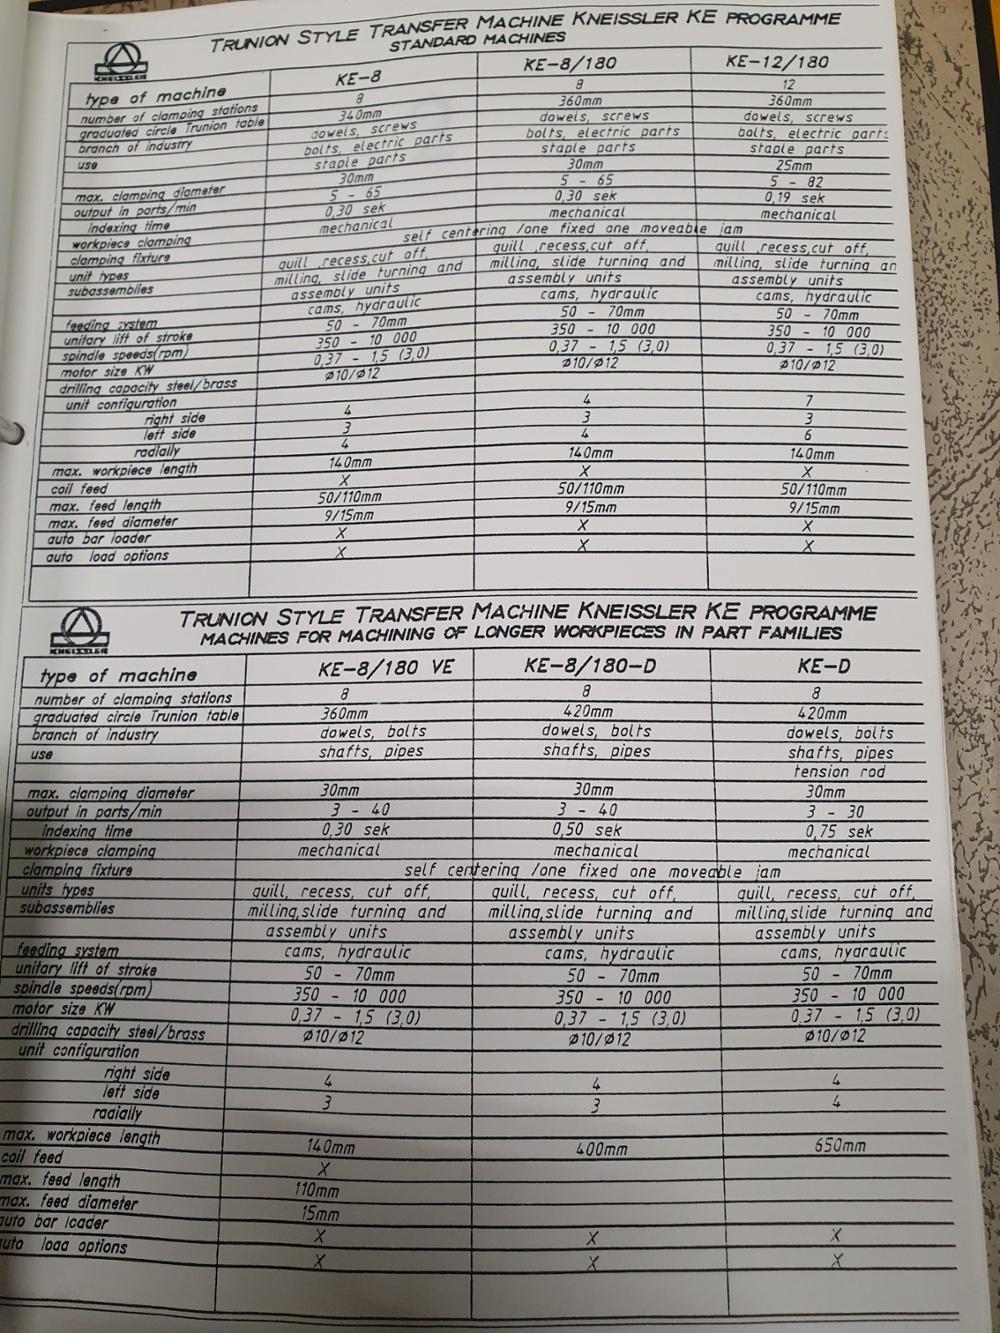 TRUNION STYLE TRANSFER MACHINE KNEISSLER KE PROGRAMME
STANDARD MACHINES
KNEISSLER
type of machine KE-8 KE-8/180 KE-12/180
number of clamping stations 8 8 12
graduated circle Trunion table 340mm 360mm 360mm
branch of industry dowels, screws dowels, screws dowels, screws
bolts, electric parts bolts, electric parts bolts, electric parts
use staple parts staple parts staple parts
max. clamping diameter 30mm 30mm 25mm
output in parts/min 5 - 65 5 - 65 5 - 82
indexing time 0,30 sek 0,30 sek 0,19 sek
workpiece clamping mechanical mechanical mechanical
clamping fixture self centering /one fixed one moveable jam
unit types quill ,recess,cut off, quill ,recess,cut off, quill ,recess,cut off,
subassemblies milling, slide turning and milling, slide turning and milling, slide turning an
assembly units assembly units assembly units
feeding system cams, hydraulic cams, hydraulic cams, hydraulic
unitary lift of stroke 50 - 70mm 50 - 70mm 50 - 70mm
spindle speeds(rpm) 350 - 10 000 350 - 10 000 350 - 10 000
motor size KW 0,37 - 1,5 (3,0) 0,37 - 1,5 (3,0) 0,37 - 1,5 (3,0)
drilling capacity steel/brass ø10/ø12 ø10/ø12 ø10/ø12
unit configuration
right side 4 4 7
left side 3 3 3
radially 4 4 6
max. workpiece length 140mm 140mm 140mm
coil feed X X X
max. feed length 50/110mm 50/110mm 50/110mm
max. feed diameter 9/15mm 9/15mm 9/15mm
auto bar loader X X X
auto load options X X X
TRUNION STYLE TRANSFER MACHINE KNEISSLER KE PROGRAMME
MACHINES FOR MACHINING OF LONGER WORKPIECES IN PART FAMILIES
KNEISSLER
type of machine KE-8/180 VE KE-8/180-D KE-D
number of clamping stations 8 8 8
graduated circle Trunion table 360mm 420mm 420mm
branch of industry dowels, bolts dowels, bolts dowels, bolts
use shafts, pipes shafts, pipes shafts, pipes
tension rod
max. clamping diameter 30mm 30mm 30mm
output in parts/min 3 - 40 3 - 40 3 - 30
indexing time 0,30 sek 0,50 sek 0,75 sek
workpiece clamping mechanical mechanical mechanical
clamping fixture self centering /one fixed one moveable jam
units types quill, recess, cut off, quill, recess, cut off, quill, recess, cut off,
subassemblies milling,slide turning and milling,slide turning and milling,slide turning and
assembly units assembly units assembly units
feeding system cams, hydraulic cams, hydraulic cams, hydraulic
unitary lift of stroke 50 - 70mm 50 - 70mm 50 - 70mm
spindle speeds(rpm) 350 - 10 000 350 - 10 000 350 - 10 000
motor size KW 0,37 - 1,5 (3,0) 0,37 - 1,5 (3,0) 0,37 - 1,5 (3,0)
drilling capacity steel/brass ø10/ø12 ø10/ø12 ø10/ø12
unit configuration
right side 4 4 4
left side 3 3 4
radially
max. workpiece length 140mm 400mm 650mm
coil feed X
max. feed length 110mm
max. feed diameter 15mm
auto bar loader X X X
auto load options X X X